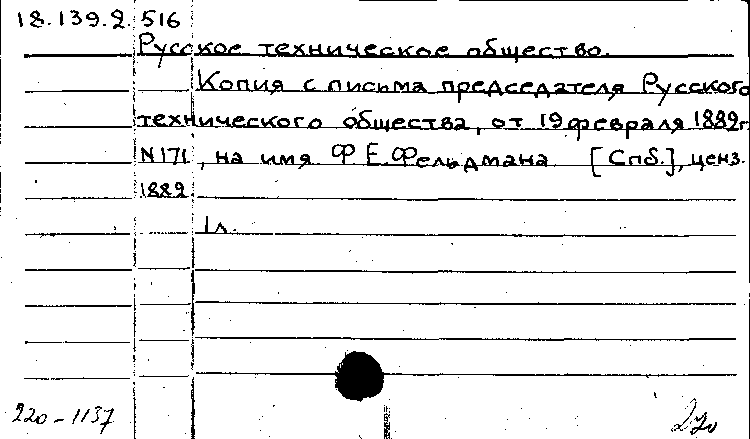 18.139.2. 516
Русское техническое общество.
Копия с письма председателя Русского
технического общества, от 19 февраля 1882г.
N171, на имя Ф.Е.Фельдмана [Спб.], ценз.
1882.
1л.
220-1137